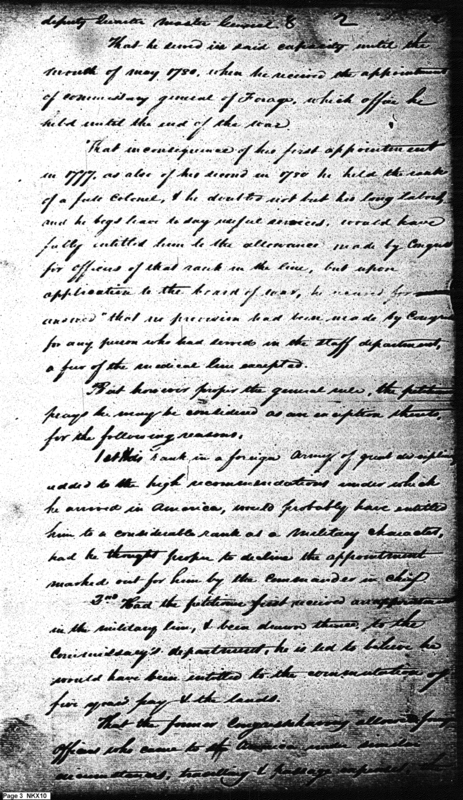 deputy Quarter Master General & 2
That he served in said capacity until the
month of may 1780, when he received the appointment
of commissary general of Forage, which office he
held until the end of the war
That in consequence of his first appointment
in 1777, as also of his second in 1780 he held the rank
of a full Colonel, & he doubts not but his long labors,
and he begs leave to say useful services, would have
fully entitled him to the allowance made by Congress
for officers of that rank in the line, but upon
application to the board of war, he received for
answer "that no provision had been made by Congress
for any person who had served in the staff department,
a few of the medical line excepted.
But however proper the general rule, the petitioner
prays he may be considered as an exception thereto,
for the following reasons.
1st His rank in a foreign Army of great discipline,
added to the high recommendations under which
he arrived in America, would probably have entitled
him to a considerable rank as a military character,
had he thought proper to decline the appointment
marked out for him by the Commander in chief
Had the petitioner first received an appointment
in the military line, & been drawn thence to the
Commissary's department, he is led to believe he
would have been entitled to the commutation of
five years pay & the lands.
That the former Congress having allowed foreign
Officers who came to America under similar
circumstances, travelling & passage expenses,
Page 3 NKX10